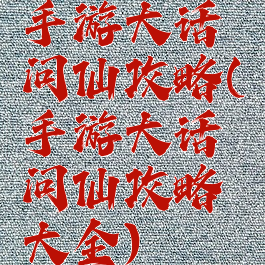 手游大话
问仙攻略(
手游大话
问仙攻略
大全)